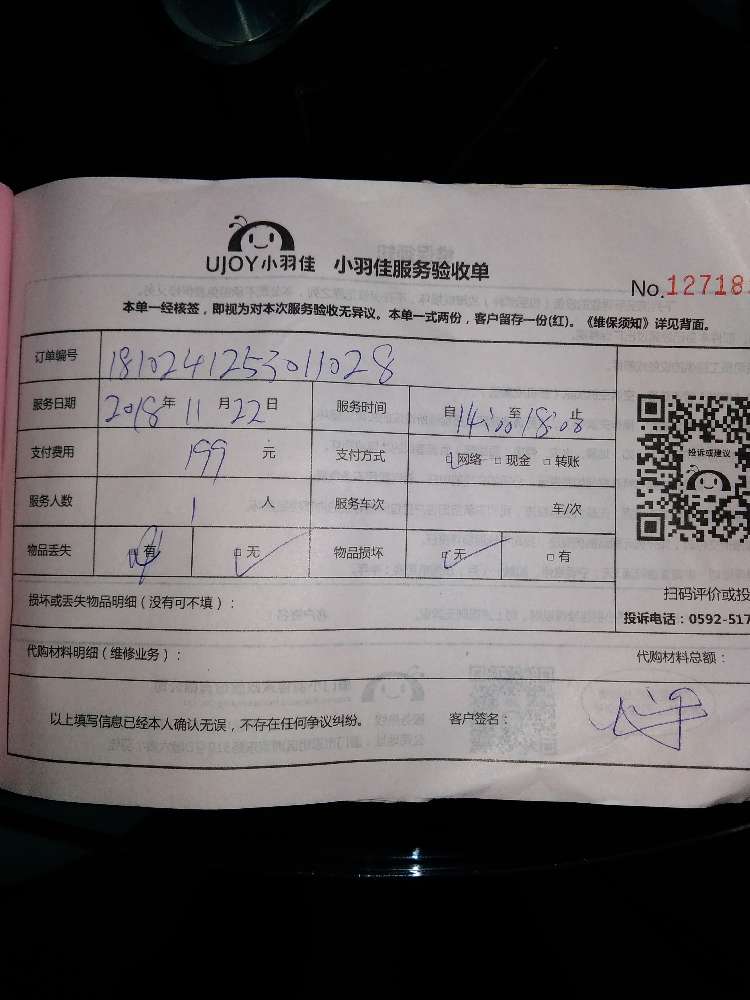 UJOY小羽佳 小羽佳服务验收单
No.12718
本单一经核签，即视为对本次服务验收无异议。本单一式两份，客户留存一份(红)。《维保须知》详见背面。
订单编号 181024125301028
服务日期 2018年 11 月 22 日 服务时间 自14:00至18:08止
支付费用 199 元 支付方式 网络 现金 转账
服务人数 1 人 服务车次 车/次
物品丢失 有 无 物品损坏 无 有
投诉或建议
扫码评价或投
损坏或丢失物品明细（没有可不填）：
投诉电话：0592-517
代购材料明细（维修业务）： 代购材料总额：
以上填写信息已经本人确认无误，不存在任何争议纠纷。 客户签名：